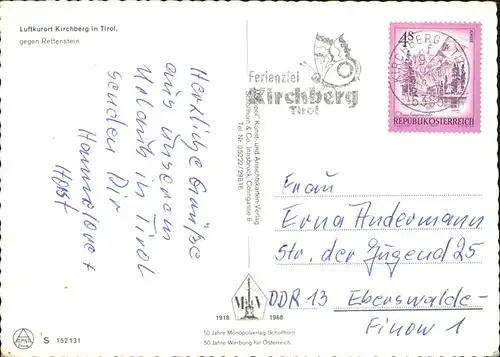 Luftkurort Kirchberg in Tirol,
gegen Rettenstein
Herzliche Grüße
aus unserem
Urlaub in Tirol
senden Dir
Hannelore +
Horst
Ferienziel
Kirchberg
Tirol
4 S
REPUBLIK ÖSTERREICH
KIRCHBERG
Kunst- und Ansichtskarten-Verlag
Schöllhorn & Co., Innsbruck,
Tel. Nr. 05222/29816
Frau
Erna Andermann
Str. der Jugend 25
DDR 13 Eberswalde-
Finow 1
1918 1968
50 Jahre Monopolverlag Schöllhorn
50 Jahre Werbung für Österreich
S 152131